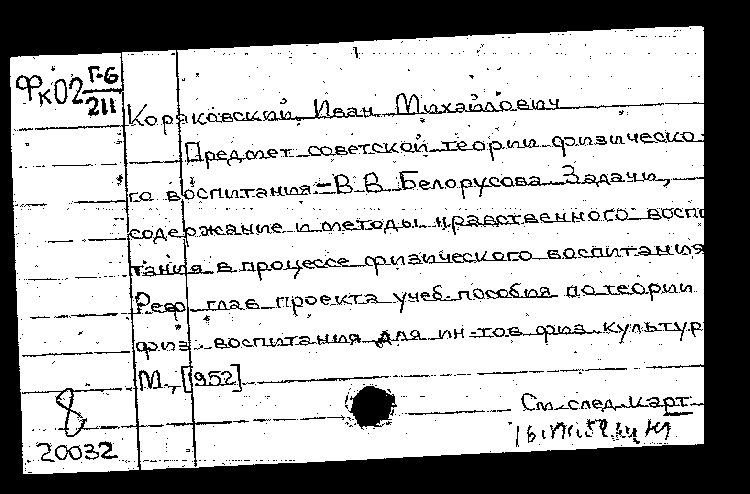 Фк02 Г-6/211
Коряковский, Иван Михайлович
Предмет советской теории физическо-
го воспитания.-В В Белорусова Задачи,
содержание и методы нравственного воспи
тания в процессе физического воспитания
Реф глав проекта учеб. пособия по теории
физ. воспитания для ин-тов физ. культур
М., [1952]
См след. карт
8
20032